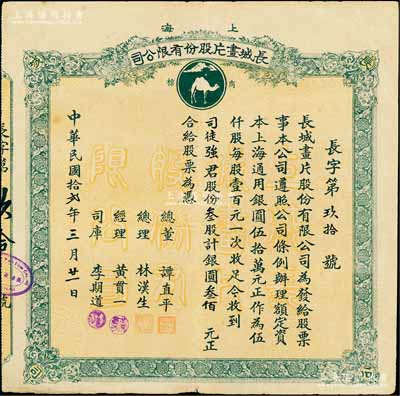 上海
長城畫片股份有限公司
商標
長字第玖拾號
長城畫片股份有限公司為發給股票
事本公司遵照公司條例辦理額定資
本上海通用銀圓伍拾萬元正作為伍
仟股每股壹百元一次收足今收到
司徒強君股份叁股計銀圓叁佰元正
合給股票為憑
總董 譚直平
總理 林漢生
經理 黃貫一
司庫 李期道
中華民國拾弍年三月廿一日
長字第
號